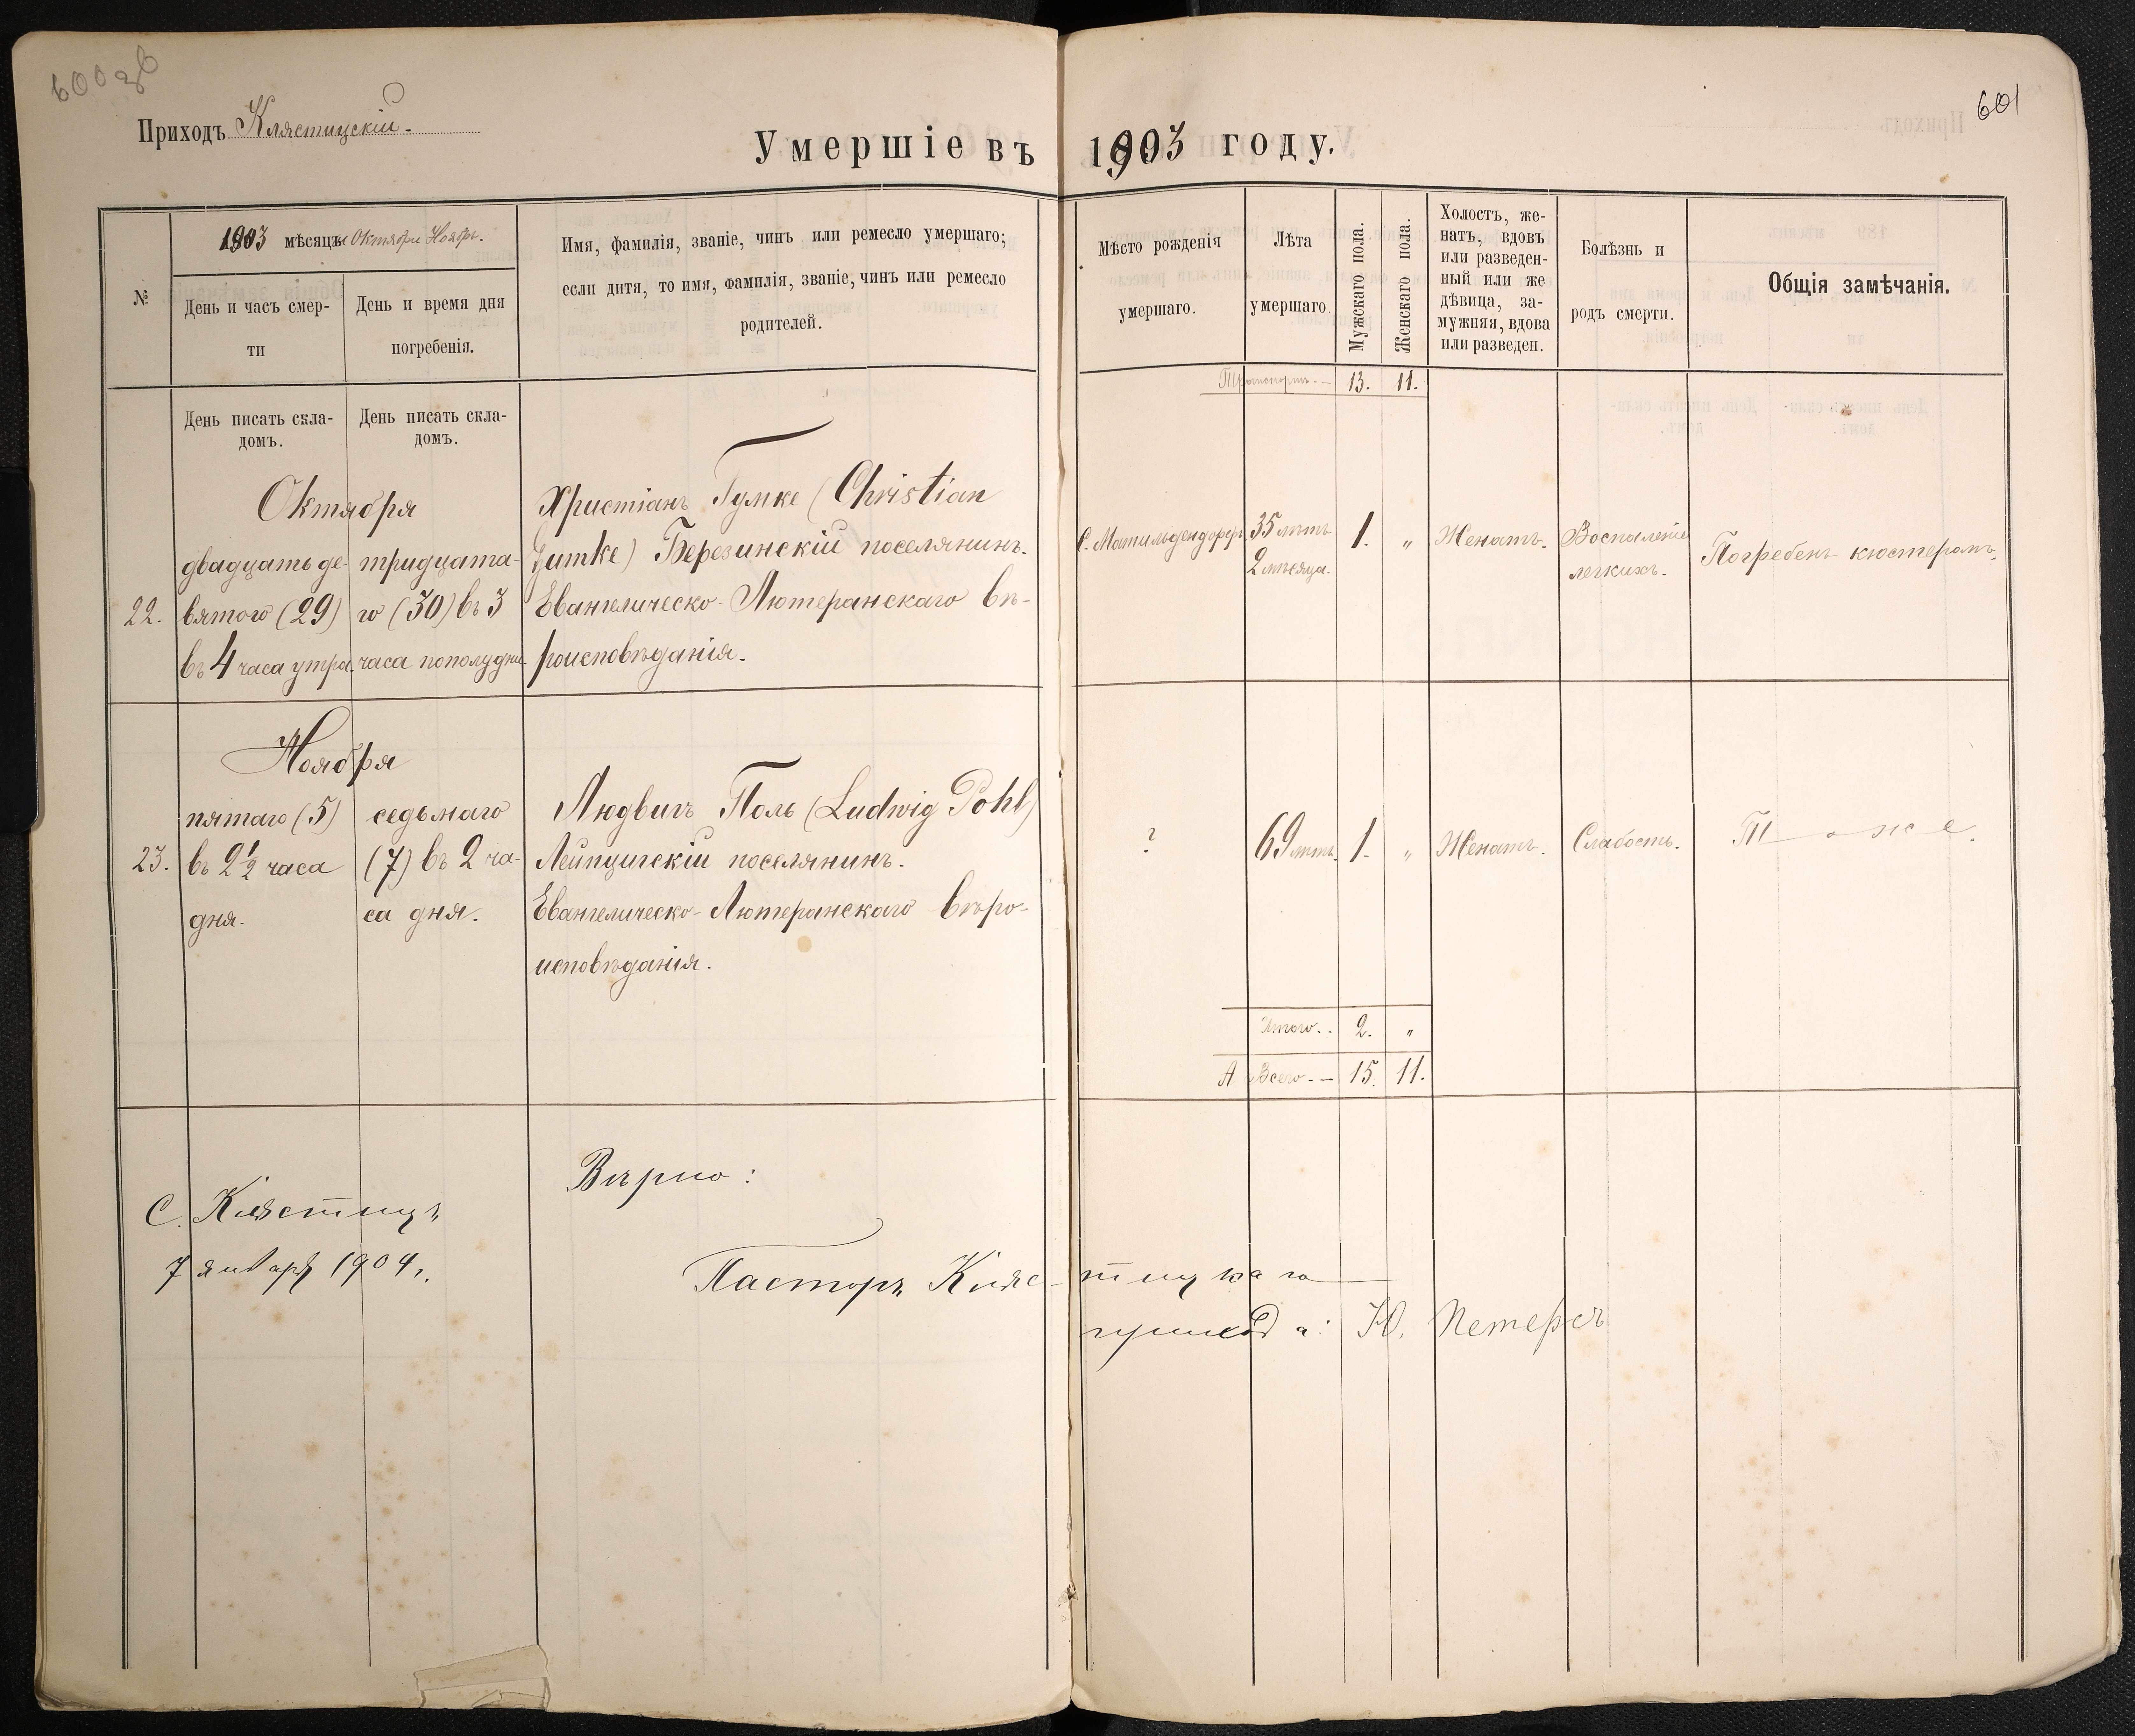 600 об
601
Приходъ Клястицскій.
Умершіе въ 1903 году.
№
1903 мѣсяцъ Октябрь Ноябрь.
День и часъ смер-
ти
День и время дня
погребенія.
Имя, фамилія, званіе, чинъ или ремесло умершаго;
если дитя, то имя, фамилія, званіе, чинъ или ремесло
родителей.
Мѣсто рожденія
умершаго.
Лѣта
умершаго.
Мужскаго пола.
Женскаго пола.
Холостъ, же-
натъ, вдовъ
или разведен-
ный или же
дѣвица, за-
мужняя, вдова
или разведен.
Болѣзнь и
родъ смерти.
Общія замѣчанія.
Транспортъ.— 13. 11.
День писать скла-
домъ.
День писать скла-
домъ.
Октября
22.
двадцать де-
вятого (29)
въ 4 часа утра.
тридцата-
го (30) въ 3
часа пополудни.
Христіанъ Гумке (Christian
Gumke) Березинскій поселянинъ.
Евангелическо-Лютеранскаго вѣ-
роисповѣданія.
С. Матильдендорфъ
35 лѣтъ
2 мѣсяца.
1.
„
Женатъ.
Воспаленіе
легкихъ.
Погребенъ кюстеромъ.
Ноября
23.
пятаго (5)
въ 2 1/2 часа
дня.
седьмаго
(7) въ 2 ча-
са дня.
Людвигъ Поль (Ludwig Pohl)
Лейпцигскій поселянинъ.
Евангелическо-Лютеранскаго вѣро-
исповѣданія.
?
69 лѣтъ.
1.
„
Женатъ.
Слабость.
Тоже.
Итого.. 2. „
А Всего.— 15. 11.
Вѣрно:
С. Клястицъ
7 января 1904 г.
Пасторъ Кляс-тицкаго
прихода: Ю. Петерсъ